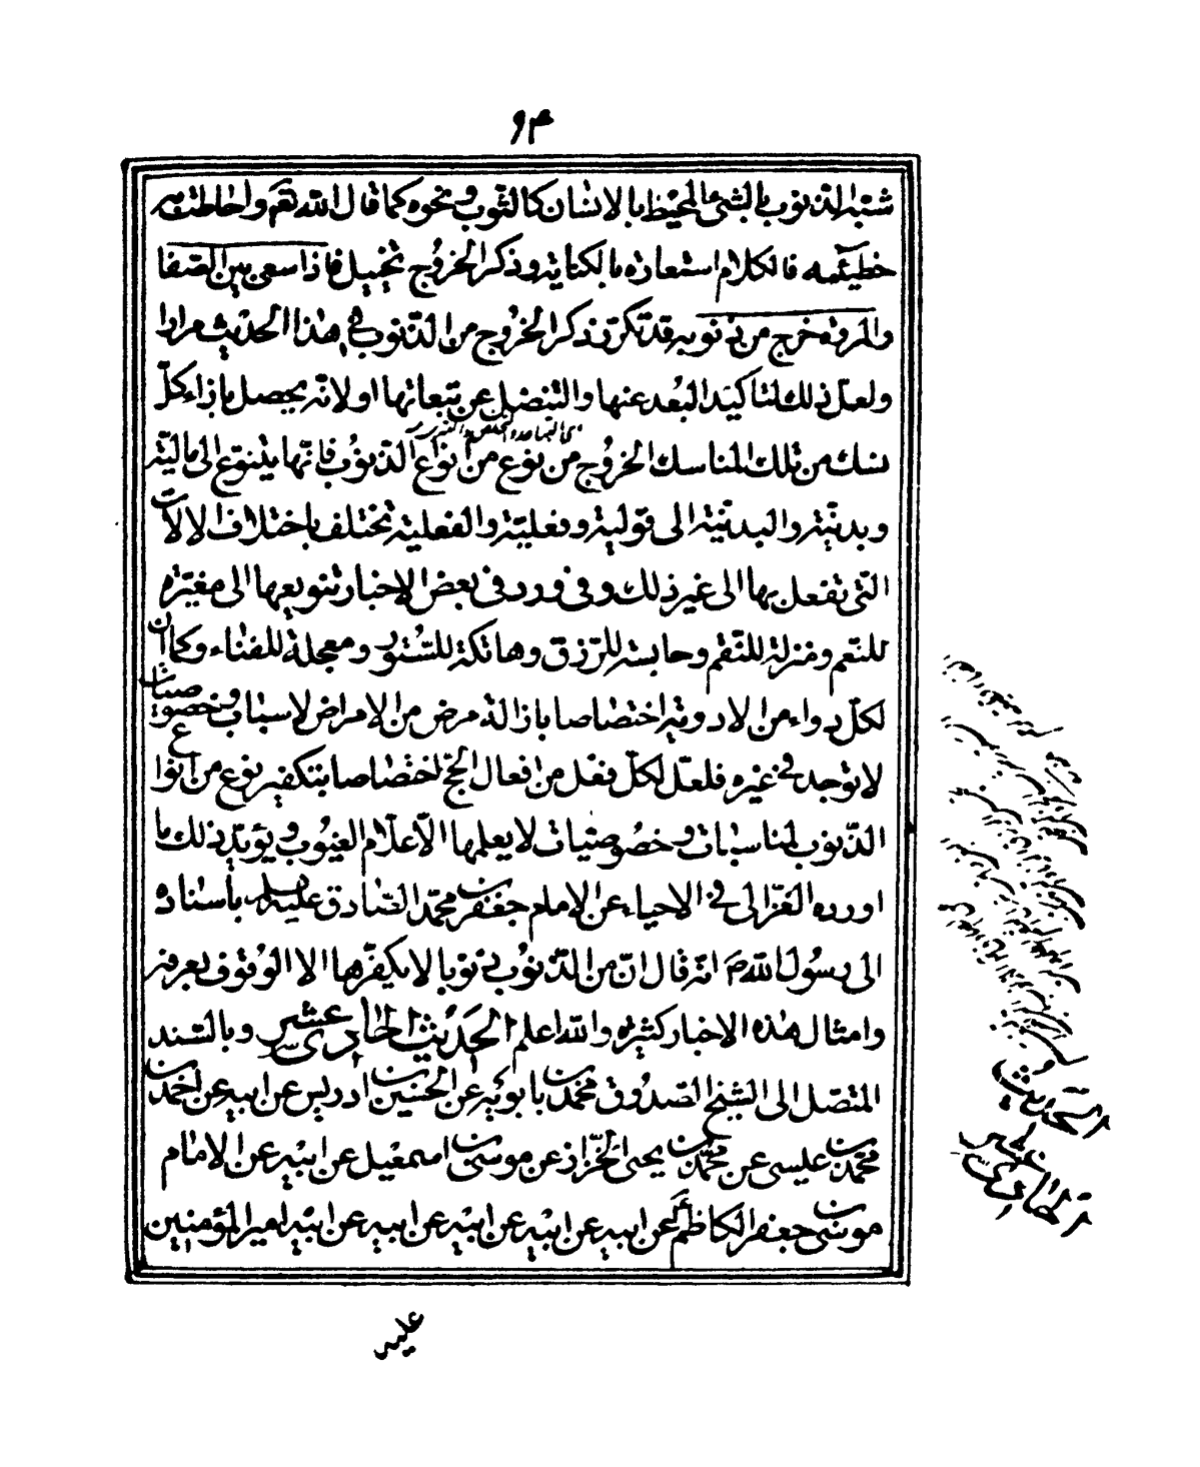 ٩٣
شبه الذنوب بالشئ المحيط بالانسان كالثوب ونحوه كما قال الله تعم واحاطت به
خطيئته فالكلام استعارة بالكناية وذكر الخروج تخييل فاذا سعى بين الصفا
والمروة خرج من ذنوبه قد تكرر ذكر الخروج من الذنوب في هذا الحديث مرارا
ولعل ذلك لتاكيد البعد عنها والتنصل عن تبعاتها او لانه يحصل بازاء كل
نسك من تلك المناسك الخروج من نوع من انواع الذنوب فانها يتنوع الى مالية
وبدنية والبدنية الى قولية وفعلية والفعلية تختلف باختلاف الالات
التى تفعل بها الى غير ذلك وفى ورد فى بعض الاخبار تنويعها الى مغيرة
للنعم ومنزلة للنقم وحابسة للرزق وهاتكة للستور ومعجلة للفناء وكما ان
لكل دواء من الادوية اختصاصا بازالة مرض من الامراض لاسباب وخصوصيات
لا توجد في غيره فلعل لكل فعل من افعال الحج اختصاصا بتكفير نوع من انواع
الذنوب لمناسبات وخصوصيات لا يعلمها الا علام الغيوب ويؤيد ذلك ما
اورده الغزالى في الاحياء عن الامام جعفر بن محمد الصادق عليه السلم باسناده
الى رسول الله ص انه قال ان من الذنوب ذنوبا لا يكفرها الا الوقوف بعرفة
وامثال هذه الاخبار كثيرة والله اعلم الحديث الحادى عشر وبالسند
المتصل الى الشيخ الصدوق محمد بن بابويه عن الحسين بن ادريس عن ابيه عن احمد بن
محمد بن عليسى عن محمد بن يحيى الخزاز عن موسى بن اسمعيل عن ابيه عن الامام
موسى بن جعفر الكاظم عن ابيه عن ابيه عن ابيه عن ابيه عن ابيه امير المؤمنين
الحديث
الحادى عشر
عليه